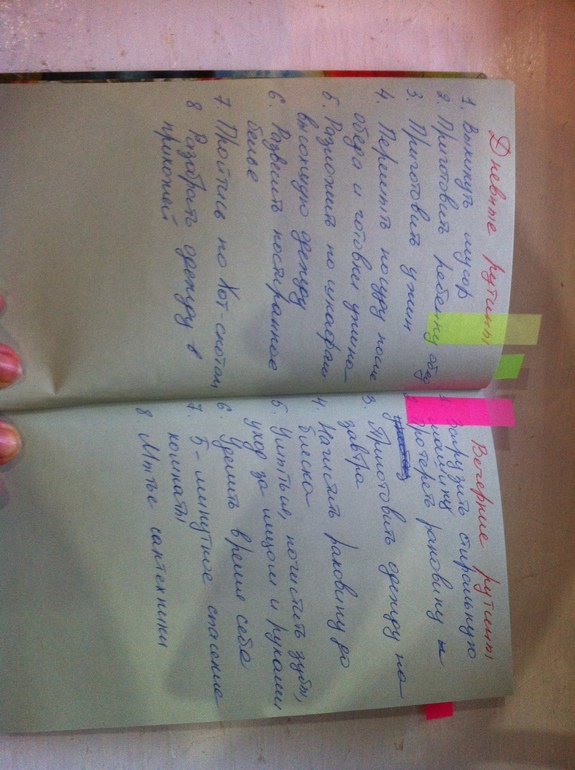 Дневные рутины
1. Выкинуть мусор
2. Приготовить ребенку обед
3. Приготовить ужин
4. Перемыть посуду после
обеда и готовки ужина
5. Разложить по шкафам
высохшую одежду
6. Развесить постиранное
белье
7 Пройтись по Хот-спотам
8 Разобрать одежду в
прихожей
Вечерние рутины
1. Загрузить стиральную
машину
2. Протереть раковину и
3. Приготовить одежду на
завтра
4. Начистить раковину до
блеска
5 Умыться, почистить зубы,
уход за лицом и руками
6. Уделить время себе
7. 5-минутное спасение
комнаты
8 Мытье сантехники